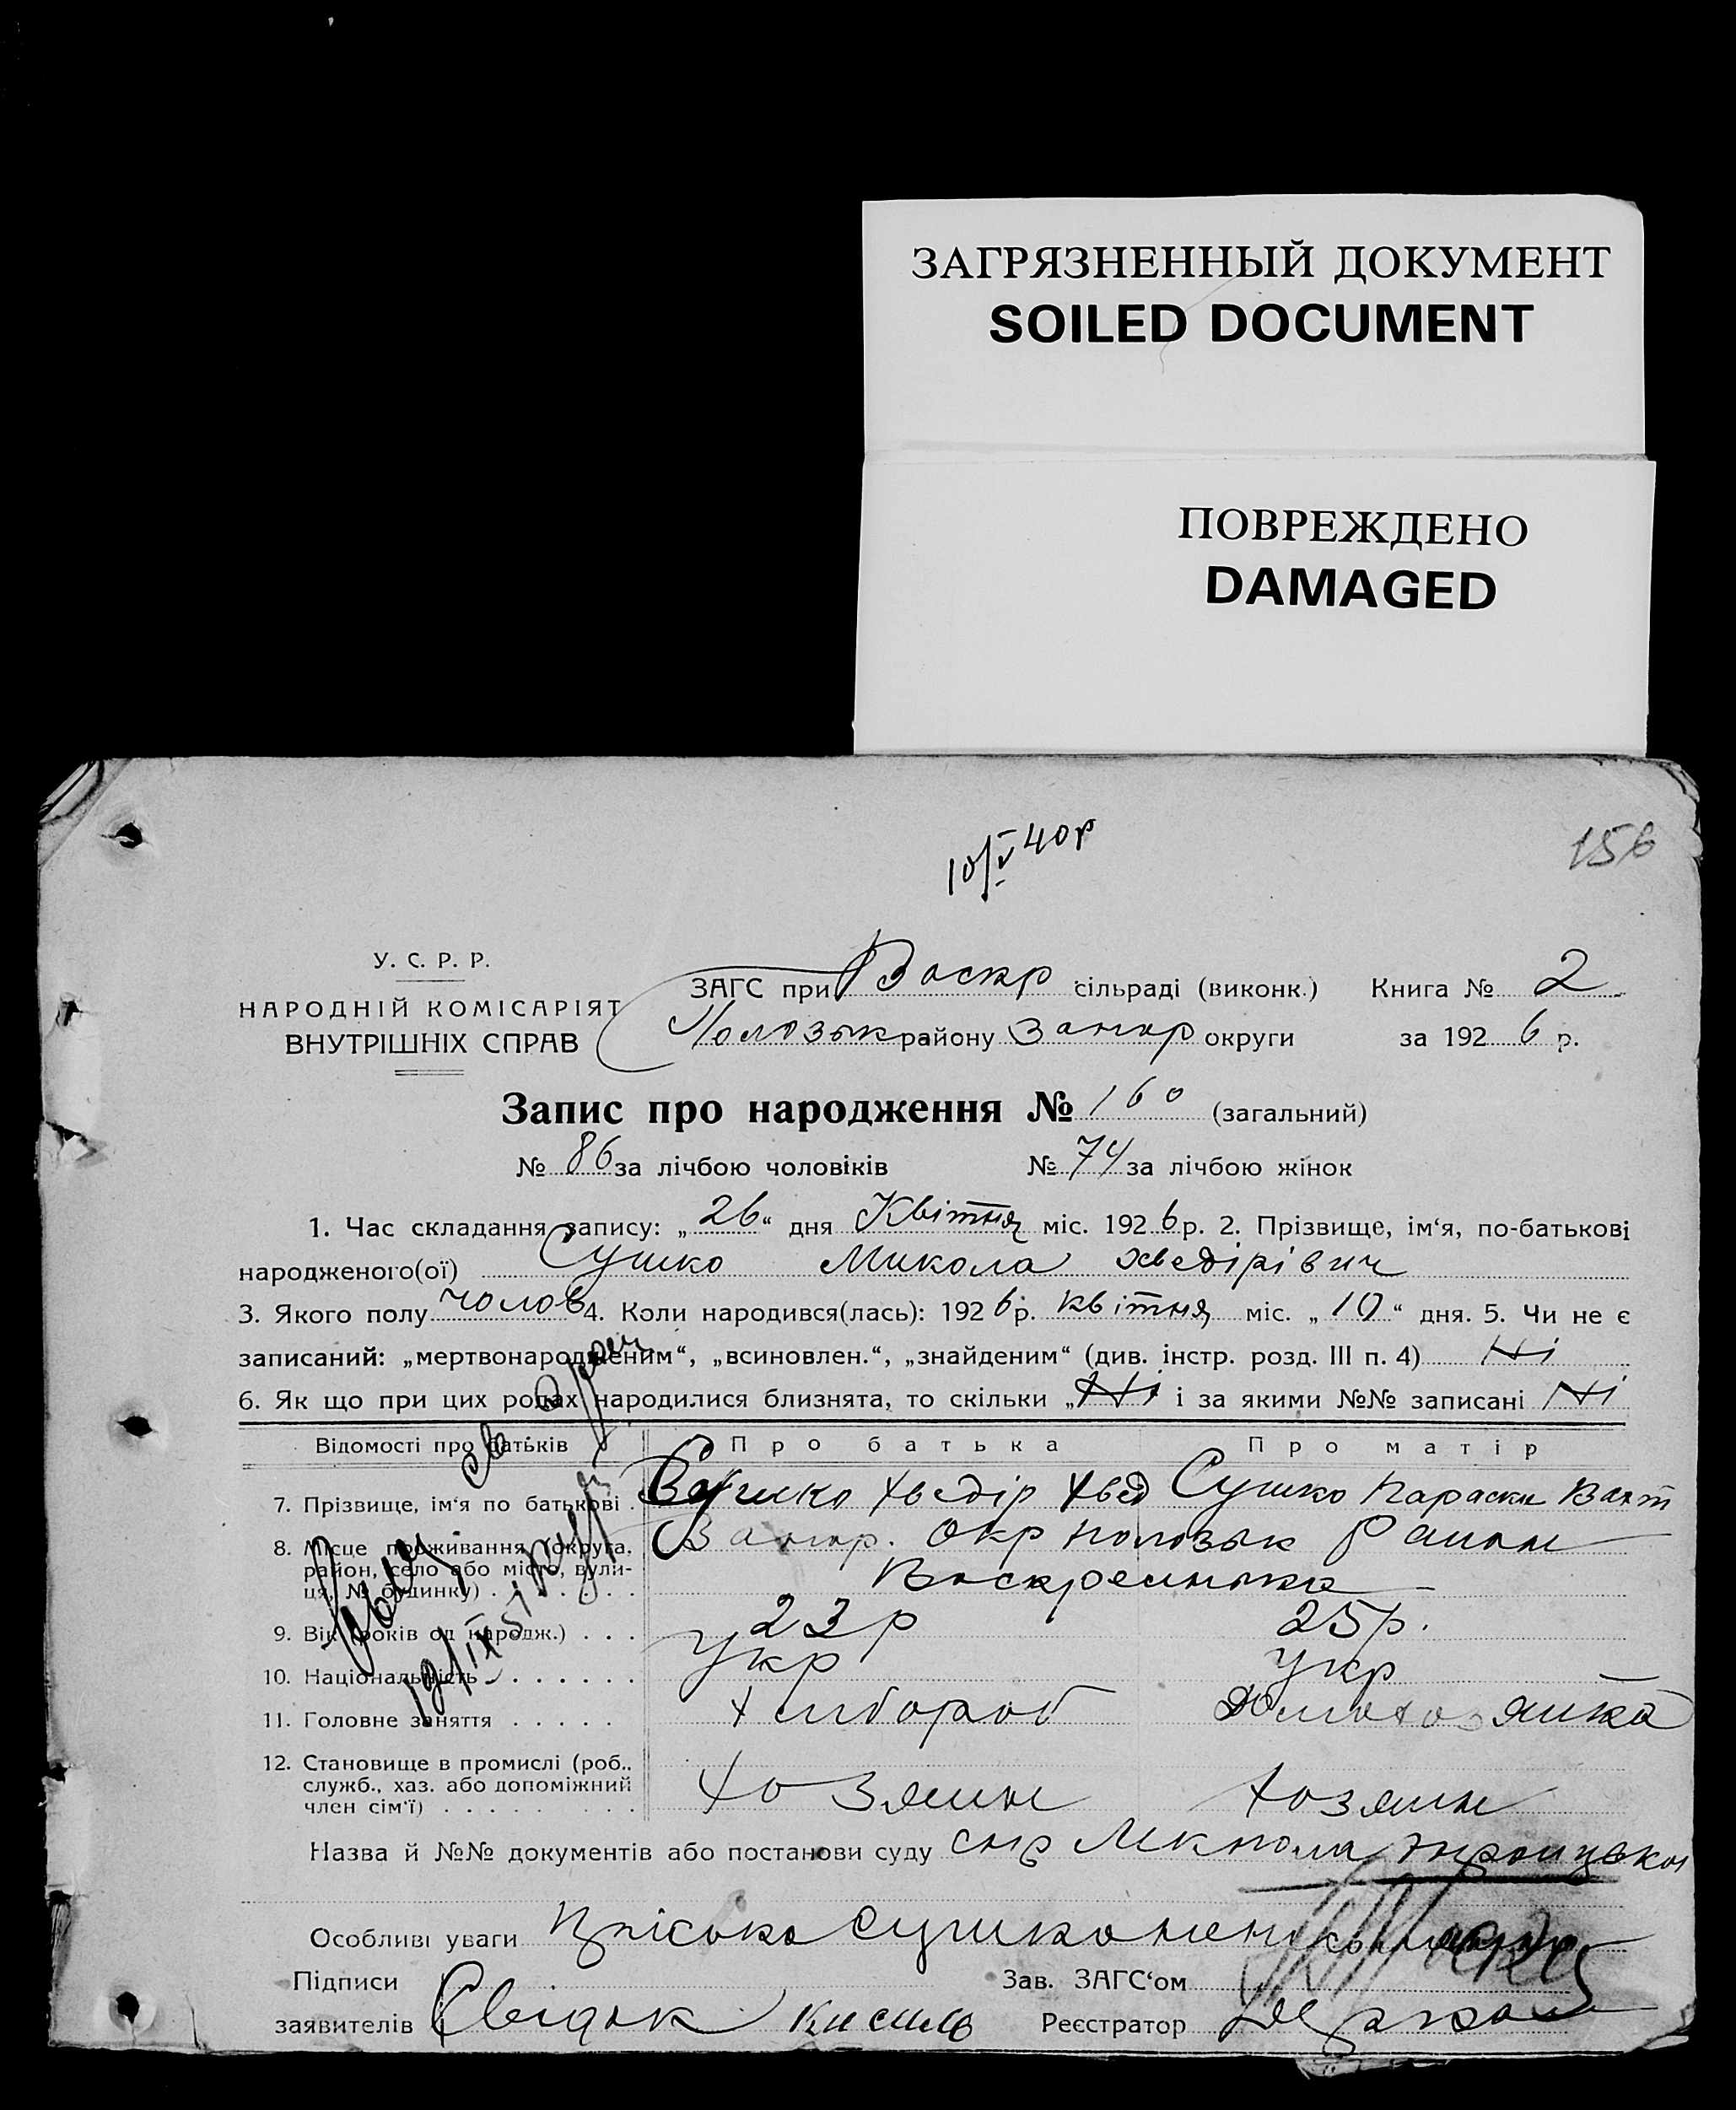 ЗАГРЯЗНЕННЫЙ ДОКУМЕНТ
SOILED DOCUMENT
ПОВРЕЖДЕНО
DAMAGED
10/V 40р
156
У. С. Р. Р.
НАРОДНІЙ КОМІСАРІЯТ
ВНУТРІШНІХ СПРАВ
ЗАГС при Воскр сільраді (виконк.) Книга № 2
Полозьк району Запор округи за 1926 р.
Запис про народження № 160 (загальний)
№ 86 за лічбою чоловіків № 74 за лічбою жінок
1. Час складання запису: „26“ дня Квітня міс. 1926 р. 2. Прізвище, ім‘я, по-батькові
народженого(ої) Сушко Микола Хведірівич
3. Якого полу чолов 4. Коли народився(лась): 1926 р. квітня міс. „10“ дня. 5. Чи не є
записаний: „мертвонародженим“, „всиновлен.“, „знайденим“ (див. інстр. розд. III п. 4) Ні
6. Як що при цих родах народилися близнята, то скільки „Ні і за якими №№ записані Ні
Відомості про батьків Про батька Про матір
7. Прізвище, ім‘я по батькові . Сушко Хведір Хвед Сушко Параски
8. Місце проживання (округа, район, село або місто, вулиця, № будинку) . . . . . Запор. Окр Полозьк Раион
Воскресинька
9. Вік (років од народж.) . . . 23 р 25 р.
10. Національність . . . . . . . укр укр
11. Головне заняття . . . . . Хлібороб Домохозяйка
12. Становище в промислі (роб., служб., хаз. або допоміжний член сім‘ї) . . . . . . . Хозяин Хозяин
Назва й №№ документів або постанови суду
Особливі уваги Пріська Сушко
Підписи Зав. ЗАГС‘ом
заявителів Свідок Кисиль Реєстратор